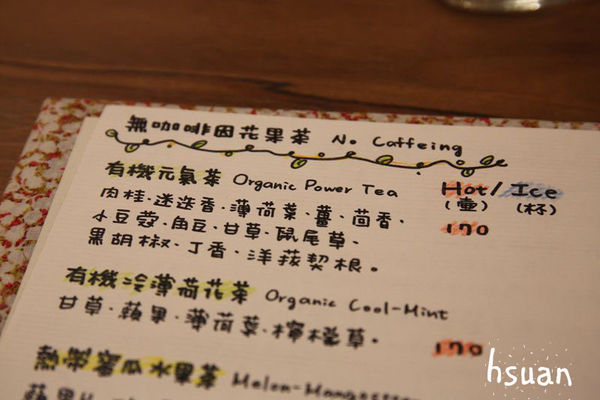 無咖啡因花果茶 No Caffeing
有機元氣茶 Organic Power Tea Hot/Ice
(壺) (杯)
肉桂·迷迭香·薄荷葉·薑·茴香·
小豆蔻·角豆·甘草·鼠尾草· 170
黑胡椒·丁香·洋菝契根。
有機冷薄荷花茶 Organic Cool-Mint
甘草·蘋果·薄荷葉·檸檬草。 170
熱帶蜜瓜水果茶 Melon-Mangosteen
hsuan